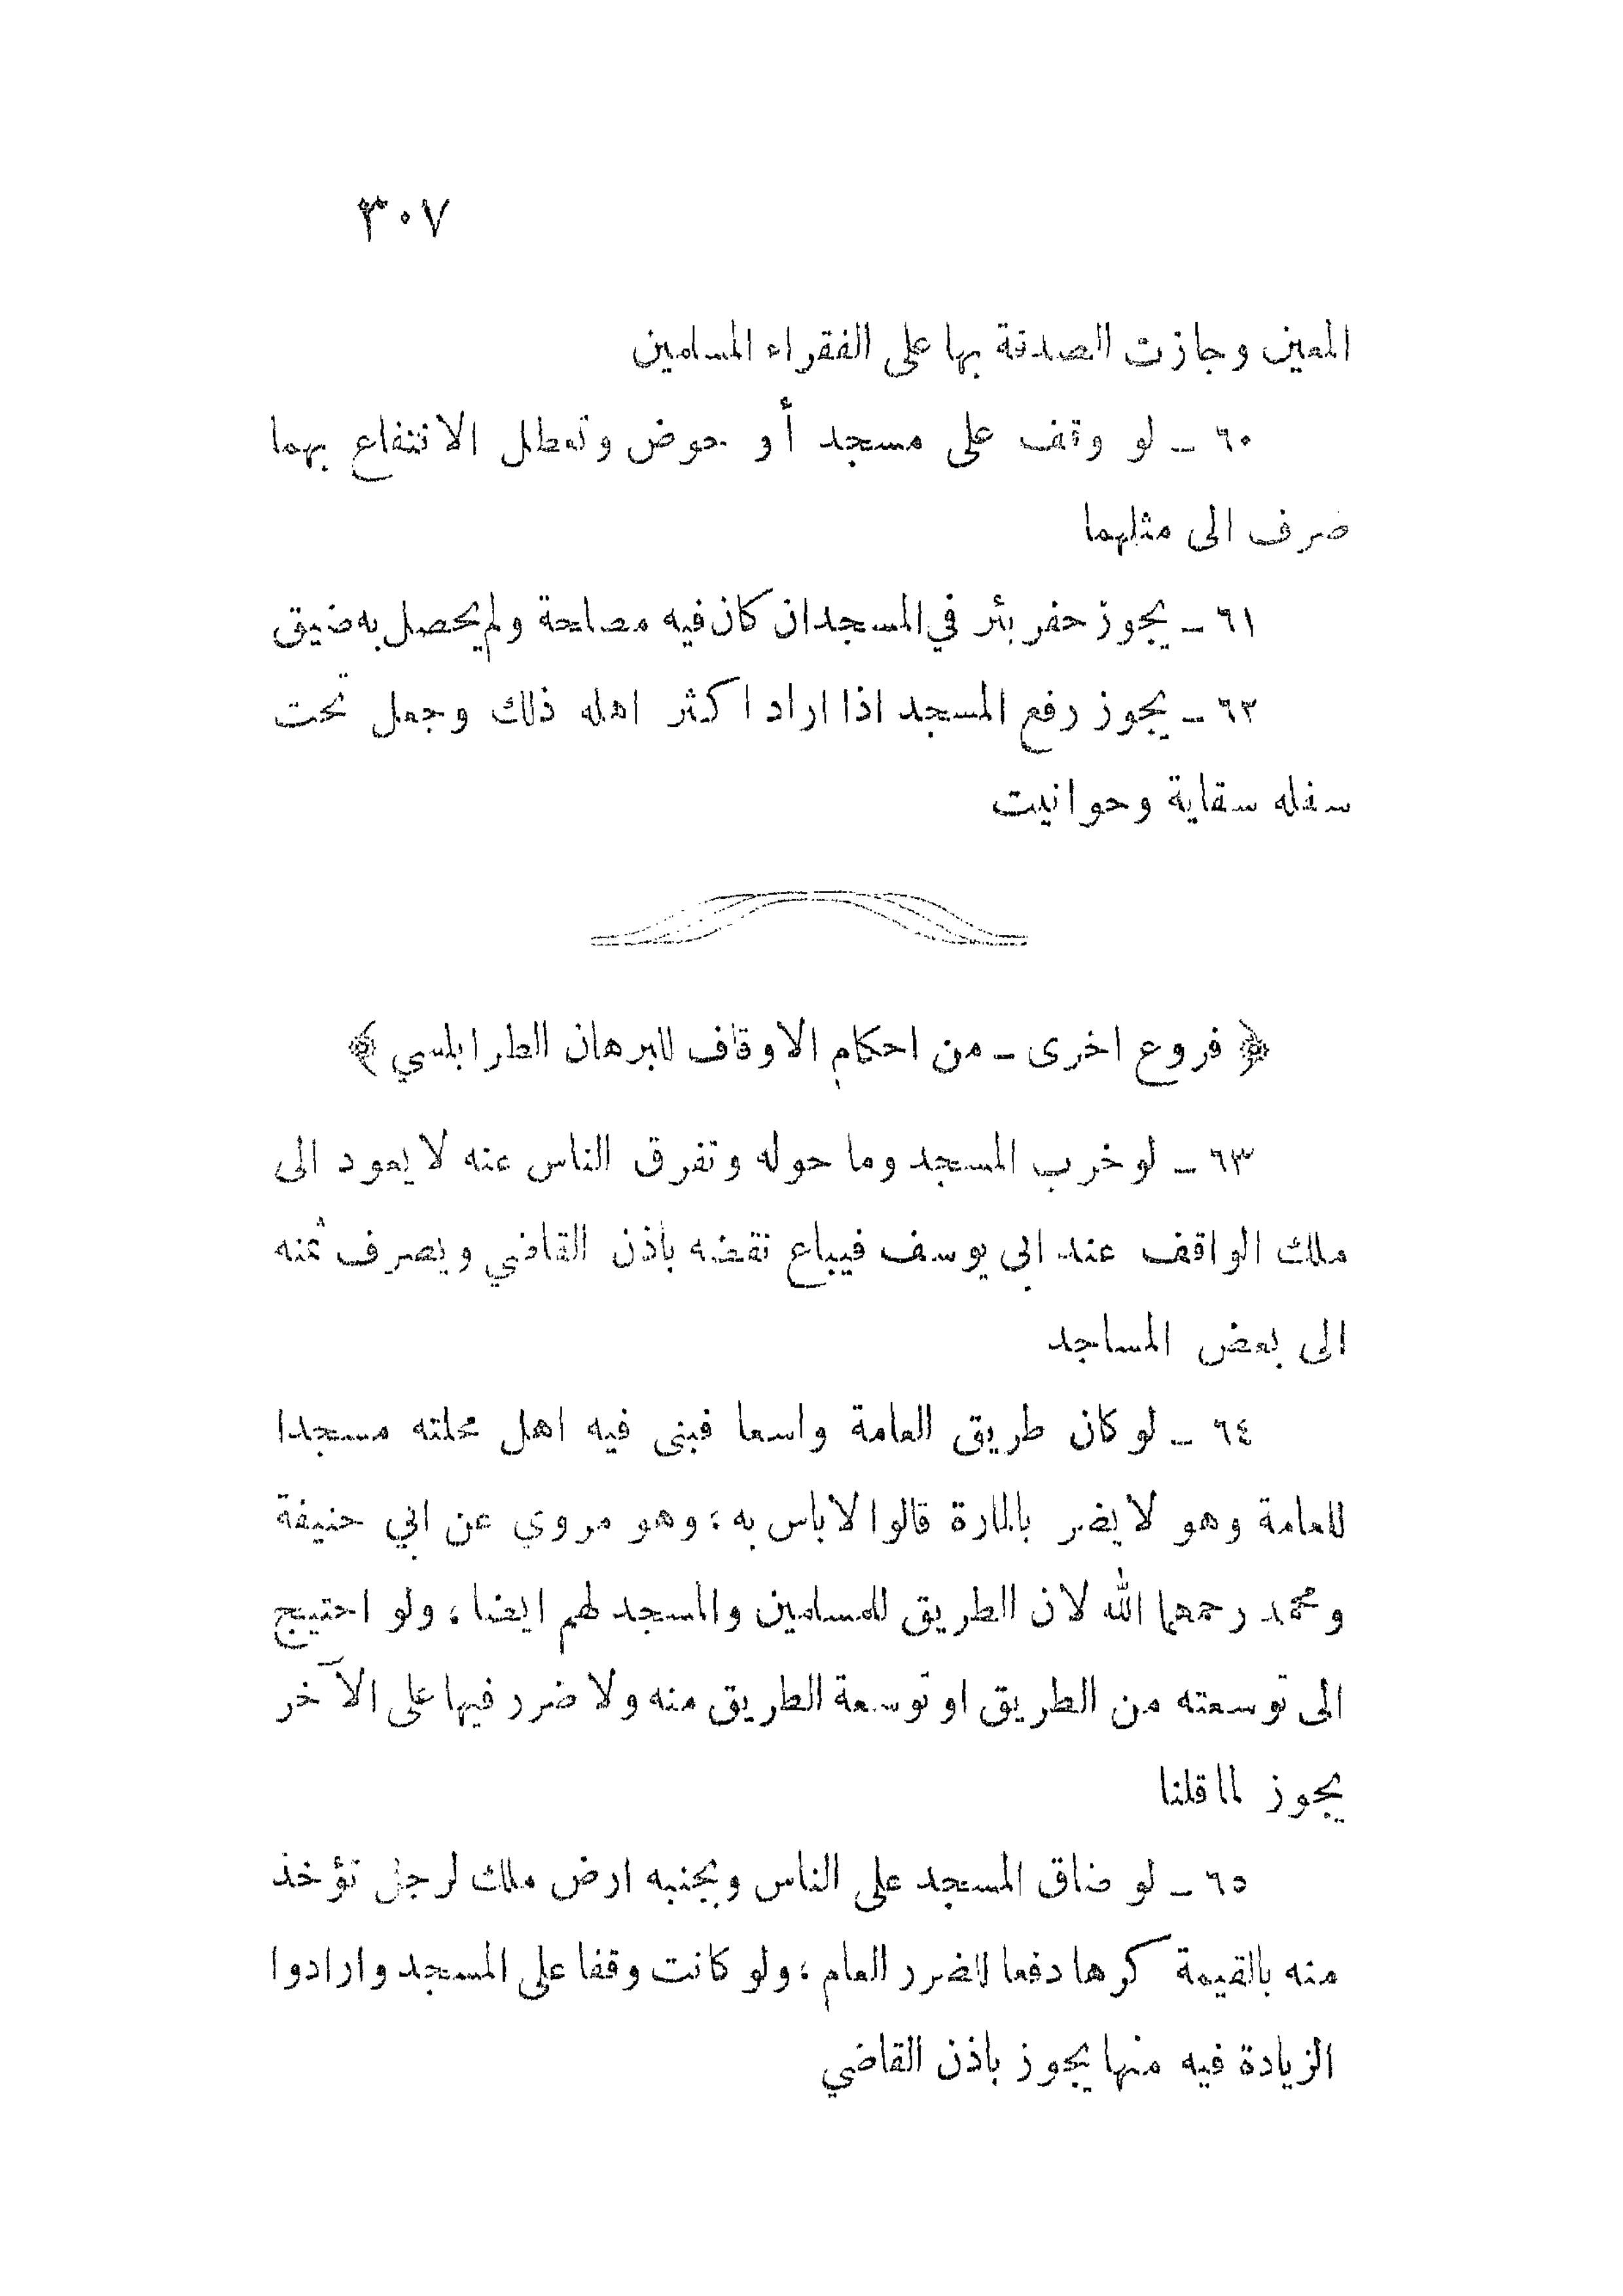 ٣٠٧
المعين وجازت الصدقة بها على الفقراء المسلمين
٦٠ ـ لو وقف على مسجد أو حوض وتعطل الانتفاع بهما
صرف الى مثلهما
٦١ ـ يجوز حفر بئر في المسجد ان كان فيه مصلحة ولم يحصل به ضيق
٦٢ ـ يجوز رفع المسجد اذا اراد اكثر اهله ذلك وجعل تحت
سفله سقاية وحوانيت
﴿ فروع اخرى ـ من احكام الاوقاف للبرهان الطرابلسي ﴾
٦٣ ـ لو خرب المسجد وما حوله وتفرق الناس عنه لا يعود الى
ملك الواقف عند ابي يوسف فيباع نقضه باذن القاضي ويصرف ثمنه
الى بعض المساجد
٦٤ ـ لو كان طريق العامة واسعا فبنى فيه اهل محلته مسجدا
للعامة وهو لا يضر بالمارة قالوا لا باس به ؛ وهو مروي عن ابي حنيفة
ومحمد رحمهما الله لان الطريق للمسلمين والمسجد لهم ايضا ، ولو احتيج
الى توسعته من الطريق او توسعة الطريق منه ولا ضرر فيها على الآخر
يجوز لما قلنا
٦٥ ـ لو ضاق المسجد على الناس وبجنبه ارض ملك لرجل تؤخذ
منه بالقيمة كرها دفعا للضرر العام ؛ ولو كانت وقفا على المسجد وارادوا
الزيادة فيه منها يجوز باذن القاضي